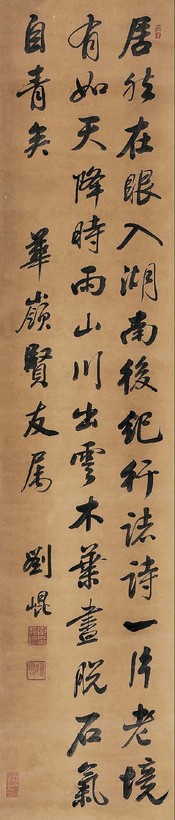 居然在眼入湖南後紀行諸詩一片老境
有如天降時雨山川出雲木葉盡脫石氣
自青矣 華嶺賢友属 劉崐